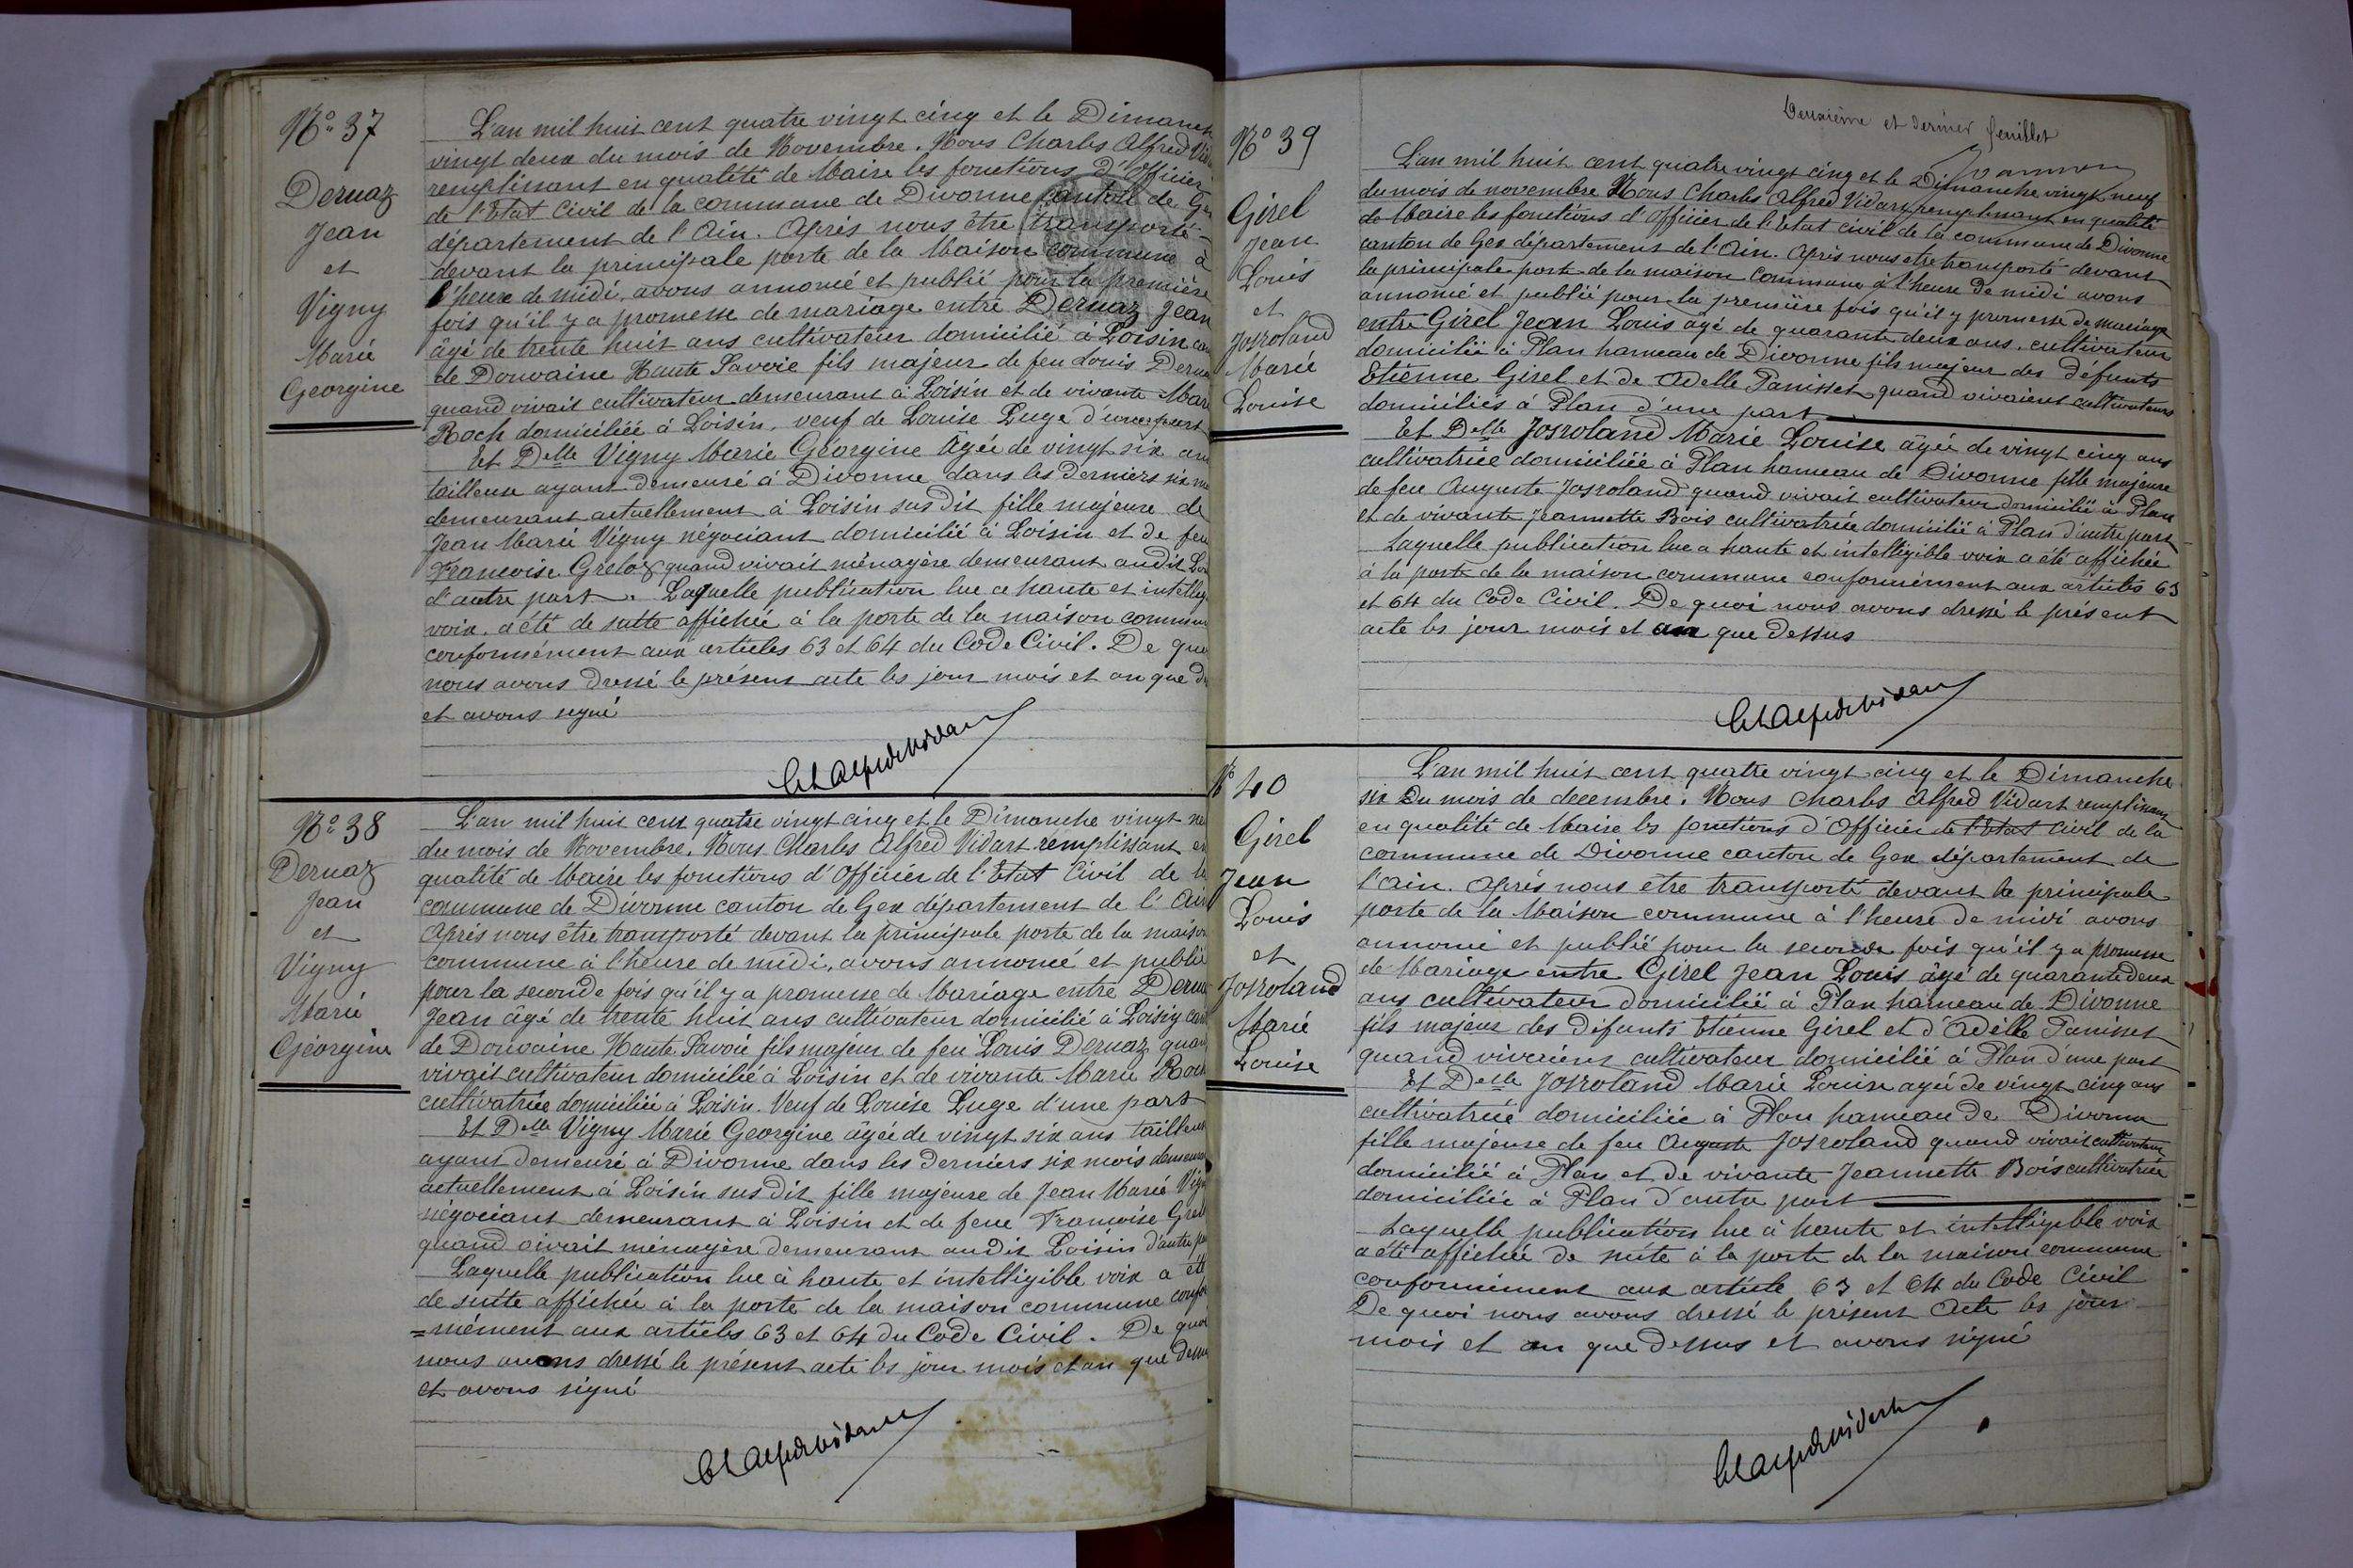 No 37
Dernaz
Jean
et
Vigny
Marie
Georgine
L'an mil huit cent quatre vingt cinq et le Dimanch
vingt deux du mois de Novembre. Nous Charles Alfred Vid
remplissant en qualité de Maire les fonctions d'Officier
de l'Etat Civil de la commune de Divonne canton de Ge
département de l'Ain. Après nous être transporté
devant la principale porte de la Maison commune à
l'heure de midi, avons annoncé et publié pour la première
fois qu'il y a promesse de mariage entre Dernaz Jean
âgé de trente huit ans cultivateur domicilié à Loisin can
de Douvaine Haute Savoie fils majeur de feu Louis Derna
quand vivait cultivateur demeurant à Loisin et de vivante Mar
Roch domiciliée à Loisin, veuf de Louise Luge d'une part
Et Delle Vigny Marie Georgine âgée de vingt six an
tailleuse ayant demeuré à Divonne dans les derniers six mo
demeurant actuellement à Loisin sus dit fille majeure de
Jean Marie Vigny négociant domicilié à Loisin et de feu
Francoise Greloz quand vivait ménagère demeurant audit Loi
d'autre part. Laquelle publication lue a haute et intellig
voix, a été de suite affichée à la porte de la maison commun
conformément aux articles 63 et 64 du Code Civil. De quo
nous avons dressé le présent acte les jour mois et an que d
et avons signé
Ch Alfred Vidart
No 38
Dernaz
Jean
et
Vigny
Marie
Géorgine
L'an mil huit cent quatre vingt cinq et le Dimanche vingt ne
du mois de Novembre. Nous Charles Alfred Vidart remplissant en
qualité de Maire les fonctions d'Officier de l'Etat Civil de la
commune de Divonne canton de Gex département de l'Ain
Après nous être transporté devant la principale porte de la maison
commune à l'heure de midi, avons annoncé et publié
pour la seconde fois qu'il y a promesse de Mariage entre Derna
Jean âgé de trente huit ans cultivateur domicilié à Loisin can
de Douvaine Haute Savoie fils majeur de feu Louis Dernaz quan
vivait cultivateur domicilié à Loisin et de vivante Marie Roch
cultivatrice domiciliée à Loisin. Veuf de Louise Luge d'une part
Et Delle Vigny Marie Georgine âgée de vingt six ans tailleus
ayant demeuré à Divonne dans les derniers six mois demeura
actuellement à Loisin sus dit fille majeure de Jean Marie Vign
négociant demeurant à Loisin et de feue Francoise Grel
quand vivait ménagère demeurant audit Loisin d'autre pa
Laquelle publication lue à haute et intelligible voix a ét
de suite affichée à la porte de la maison commune confor
=mément aux articles 63 et 64 du Code Civil. De quoi
nous avons dressé le présent acte les jour mois et an que dessu
et avons signé
Ch Alfred Vidart
Deuxième et dernier feuillet
No 39
Girel
Jean
Louis
et
Josroland
Marie
Louise
L'an mil huit cent quatre vingt cinq et le Dimanche vingt neuf
du mois de novembre Nous Charles Alfred Vidart remplissant en qualité
de Maire les fonctions d'Officier de l'Etat civil de la commune de Divonne
canton de Gex département de l'Ain. Après nous etre transporté devant
la principale porte de la maison Commune à l'heure de midi avons
annoncé et publié pour la première fois qu'il y promesse de mariage
entre Girel Jean Louis âgé de quarante deux ans, cultivateur
domicilié à Plan hameau de Divonne fils majeur des défunts
Etienne Girel et de Adelle Panisset quand vivaient cultivateurs
domiciliés à Plan d'une part
Et Delle Josroland Marie Louise âgée de vingt cinq ans
cultivatrice domiciliée à Plan hameau de Divonne fille majeure
de feu Auguste Josroland quand vivait cultivateur domicilié à Plan
et de vivante Jeannette Bois cultivatrice domicilié à Plan d'autre part
Laquelle publication lue a haute et intelligible voix a été affichée
à la porte de la maison commune conformément aux articles 63
et 64 du Code Civil. De quoi nous avons dressé le présent
acte les jour mois et an que dessus
Ch Alfred Vidart
No 40
Girel
Jean
Louis
et
Josroland
Marie
Louise
L'an mil huit cent quatre vingt cinq et le Dimanche
six du mois de decembre. Nous Charles Alfred Vidart remplissant
en qualité de Maire les fonctions d'Officier de l'Etat Civil de la
commune de Divonne canton de Gex département de
l'Ain. Après nous être transporté devant la principale
porte de la Maison commune à l'heure de midi avons
annoncé et publié pour la seconde fois qu'il y a promesse
de Mariage entre Girel Jean Louis âgé de quarante deux
ans cultivateur domicilié à Plan hameau de Divonne
fils majeur des défunts Etienne Girel et d'Adèlle Panisset
quand vivaient cultivateur domicilié à Plan d'une part
Et Delle Josroland Marie Louise agée de vingt cinq ans
cultivatrice domiciliée à Plan hameau de Divonne
fille majeure de feu Auguste Josroland quand vivait cultivateur
domicilié à Plan et de vivante Jeannette Bois cultivatrice
domiciliée à Plan d'autre part
Laquelle publication lue à haute et intelligible voix
a été affichée de suite à la porte de la maison commune
conformément aux article 63 et 64 du Code Civil
De quoi nous avons dressé le présent acte les jour
mois et an que dessus et avons signé
Ch Alfred Vidart